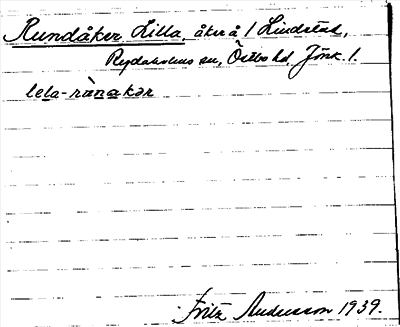 Rundåker, Lilla, åker å 1 Lindstad,
Rydaholms sn, Östbo hd, Jönk. l.
lɛla-rànakər
Fritz Andersson 1939.